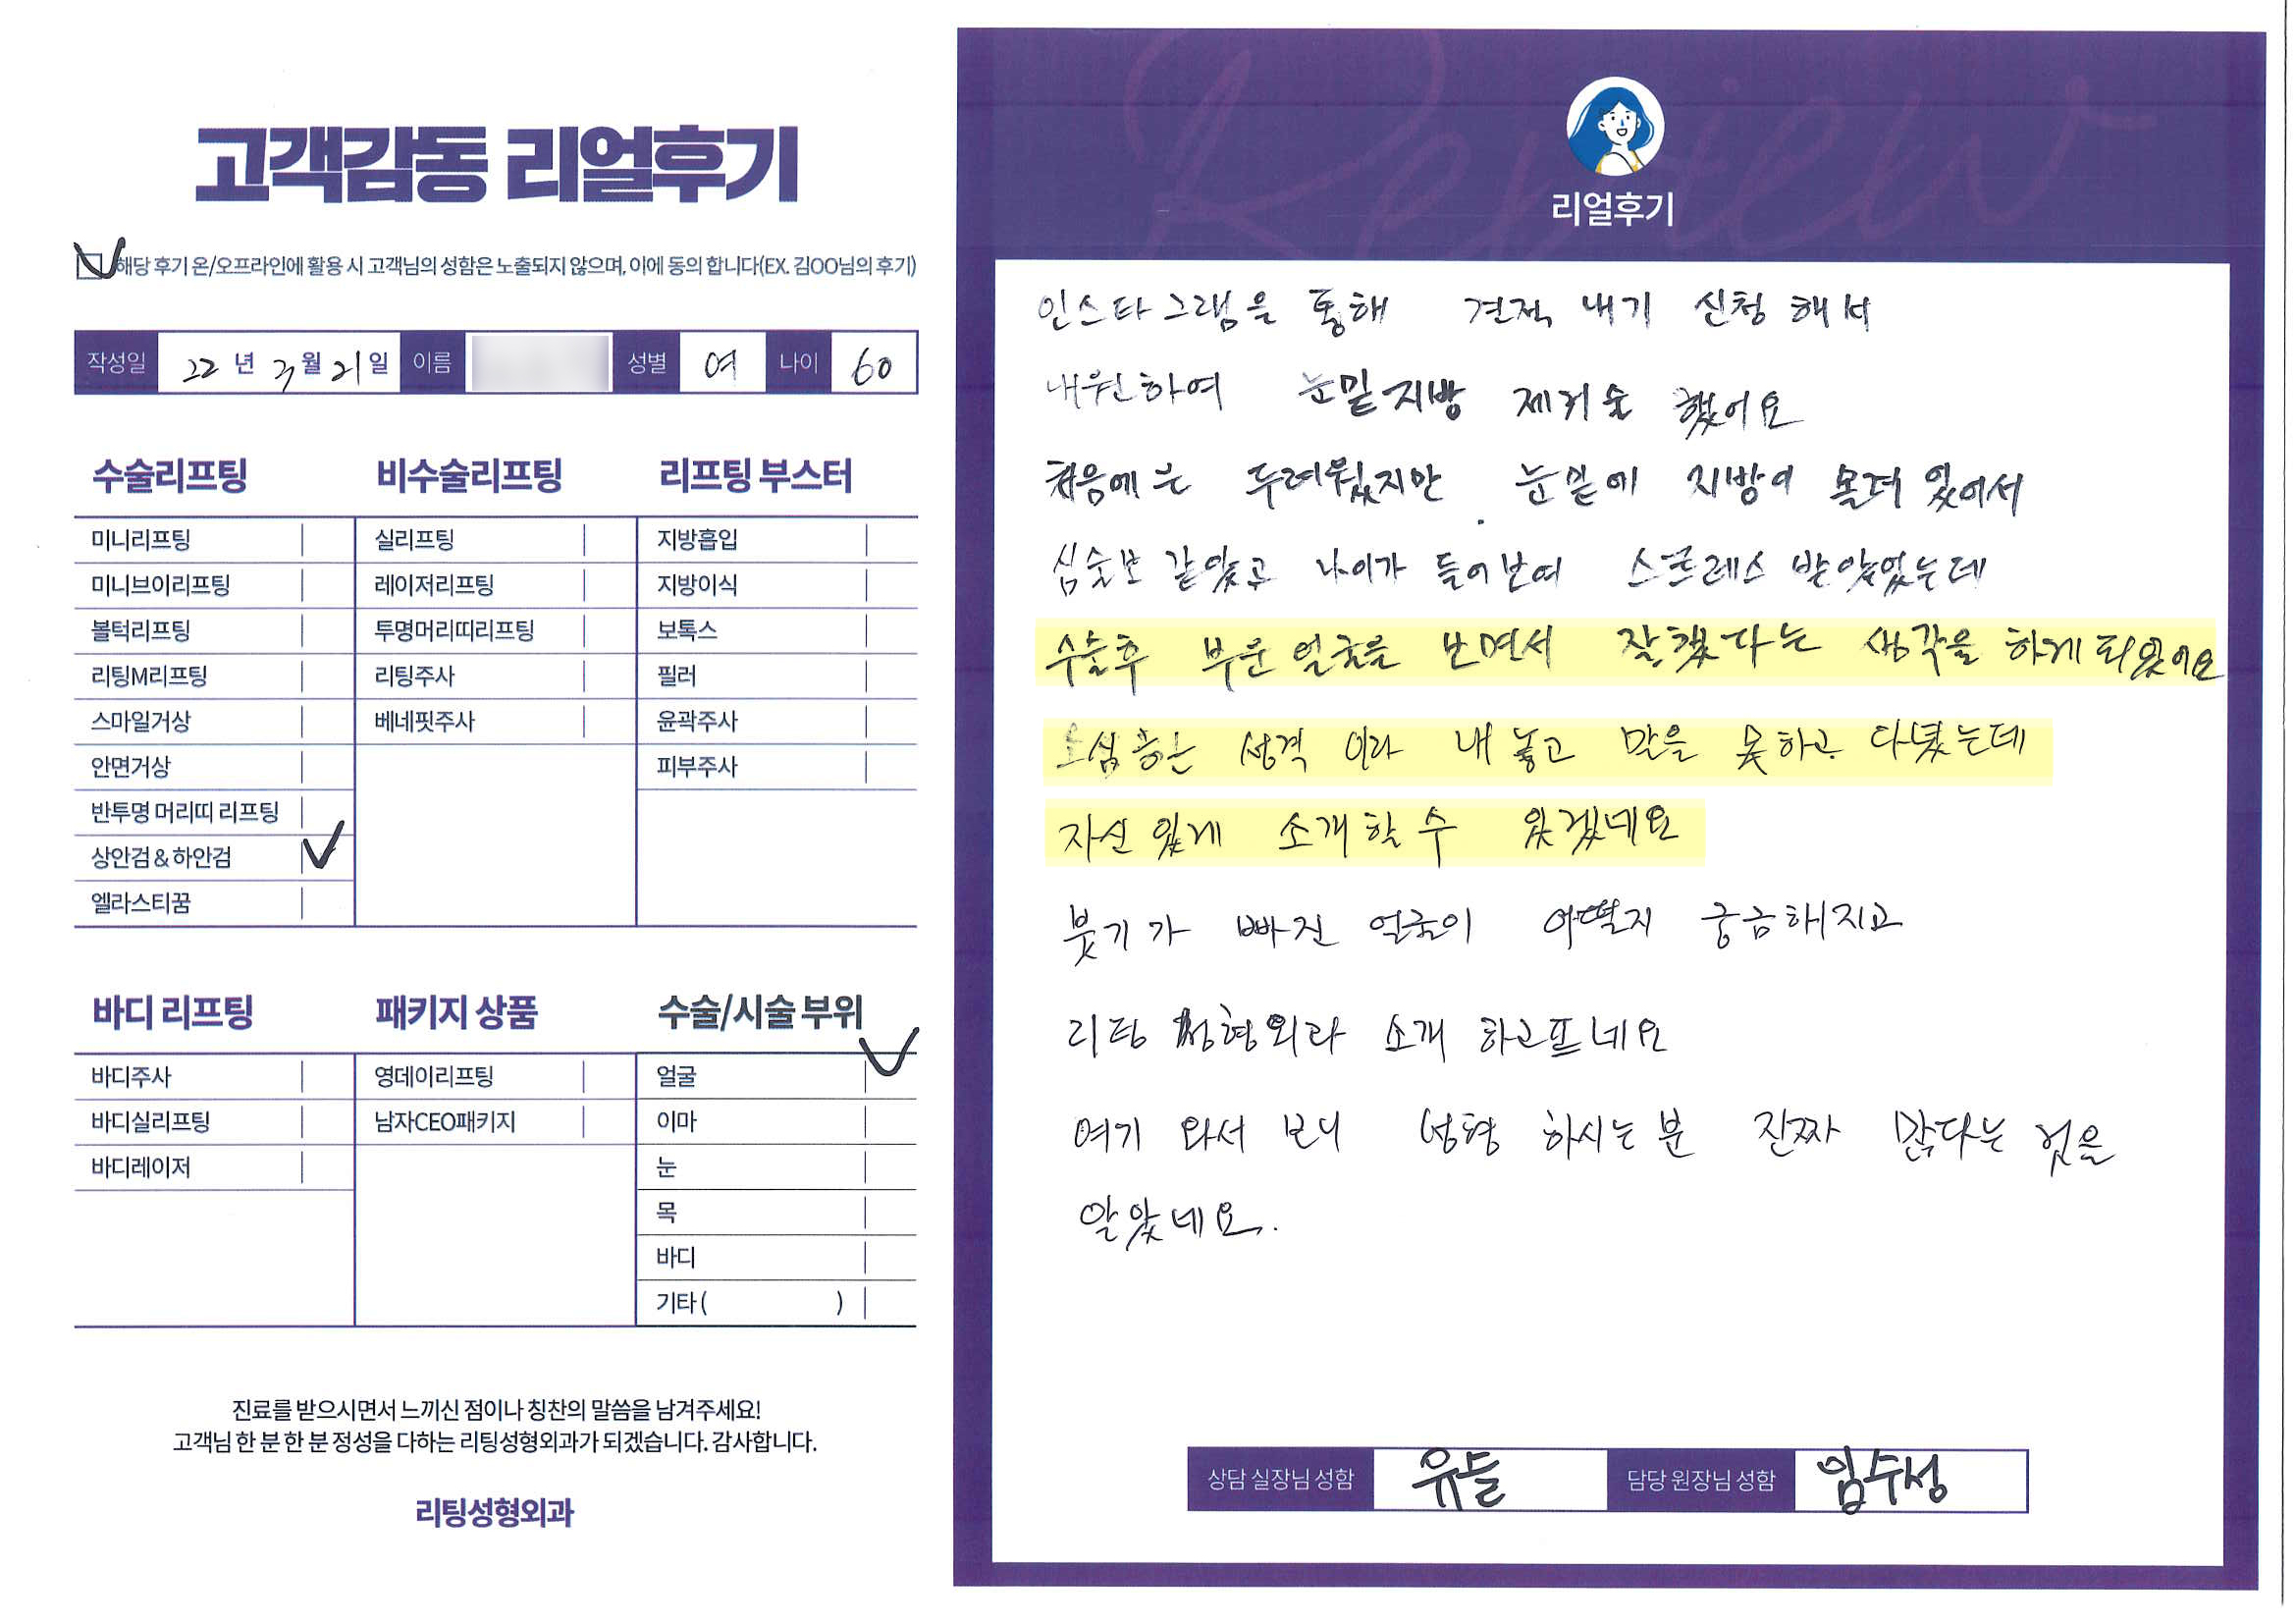 고객감동 리얼후기
해당 후기 온/오프라인에 활용 시 고객님의 성함은 노출되지 않으며, 이에 동의 합니다(EX. 김OO님의 후기)
작성일 22 년 3 월 21 일 이름 성별 여 나이 60
수술리프팅
미니리프팅
미니브이리프팅
볼턱리프팅
리팅M리프팅
스마일거상
안면거상
반투명 머리띠 리프팅
상안검 & 하안검
엘라스티꿈
비수술리프팅
실리프팅
레이저리프팅
투명머리띠리프팅
리팅주사
베네핏주사
리프팅 부스터
지방흡입
지방이식
보톡스
필러
윤곽주사
피부주사
바디 리프팅
바디주사
바디실리프팅
바디레이저
패키지 상품
영데이리프팅
남자CEO패키지
수술/시술 부위
얼굴
이마
눈
목
바디
기타 ( )
진료를 받으시면서 느끼신 점이나 칭찬의 말씀을 남겨주세요!
고객님 한 분 한 분 정성을 다하는 리팅성형외과가 되겠습니다. 감사합니다.
리팅성형외과
Review
리얼후기
인스타그램을 통해 견적 내기 신청해서
내원하여 눈밑지방 제거술 했어요
처음에는 두려웠지만 눈밑에 지방이 몰려 있어서
심술보 같았고 나이가 들어보여 스트레스 받았었는데
수술후 부은 얼굴을 보면서 잘했다는 생각을 하게 되었어요
소심한 성격 이라 내 놓고 말을 못하고 다녔는데
자신 있게 소개할 수 있겠네요
붓기가 빠진 얼굴이 어떨지 궁금해지고
리팅 성형외과 소개 하고프네요
여기 와서 보니 성형 하시는 분 진짜 많다는 것을
알았네요.
상담 실장님 성함 유들 담당 원장님 성함 임수성